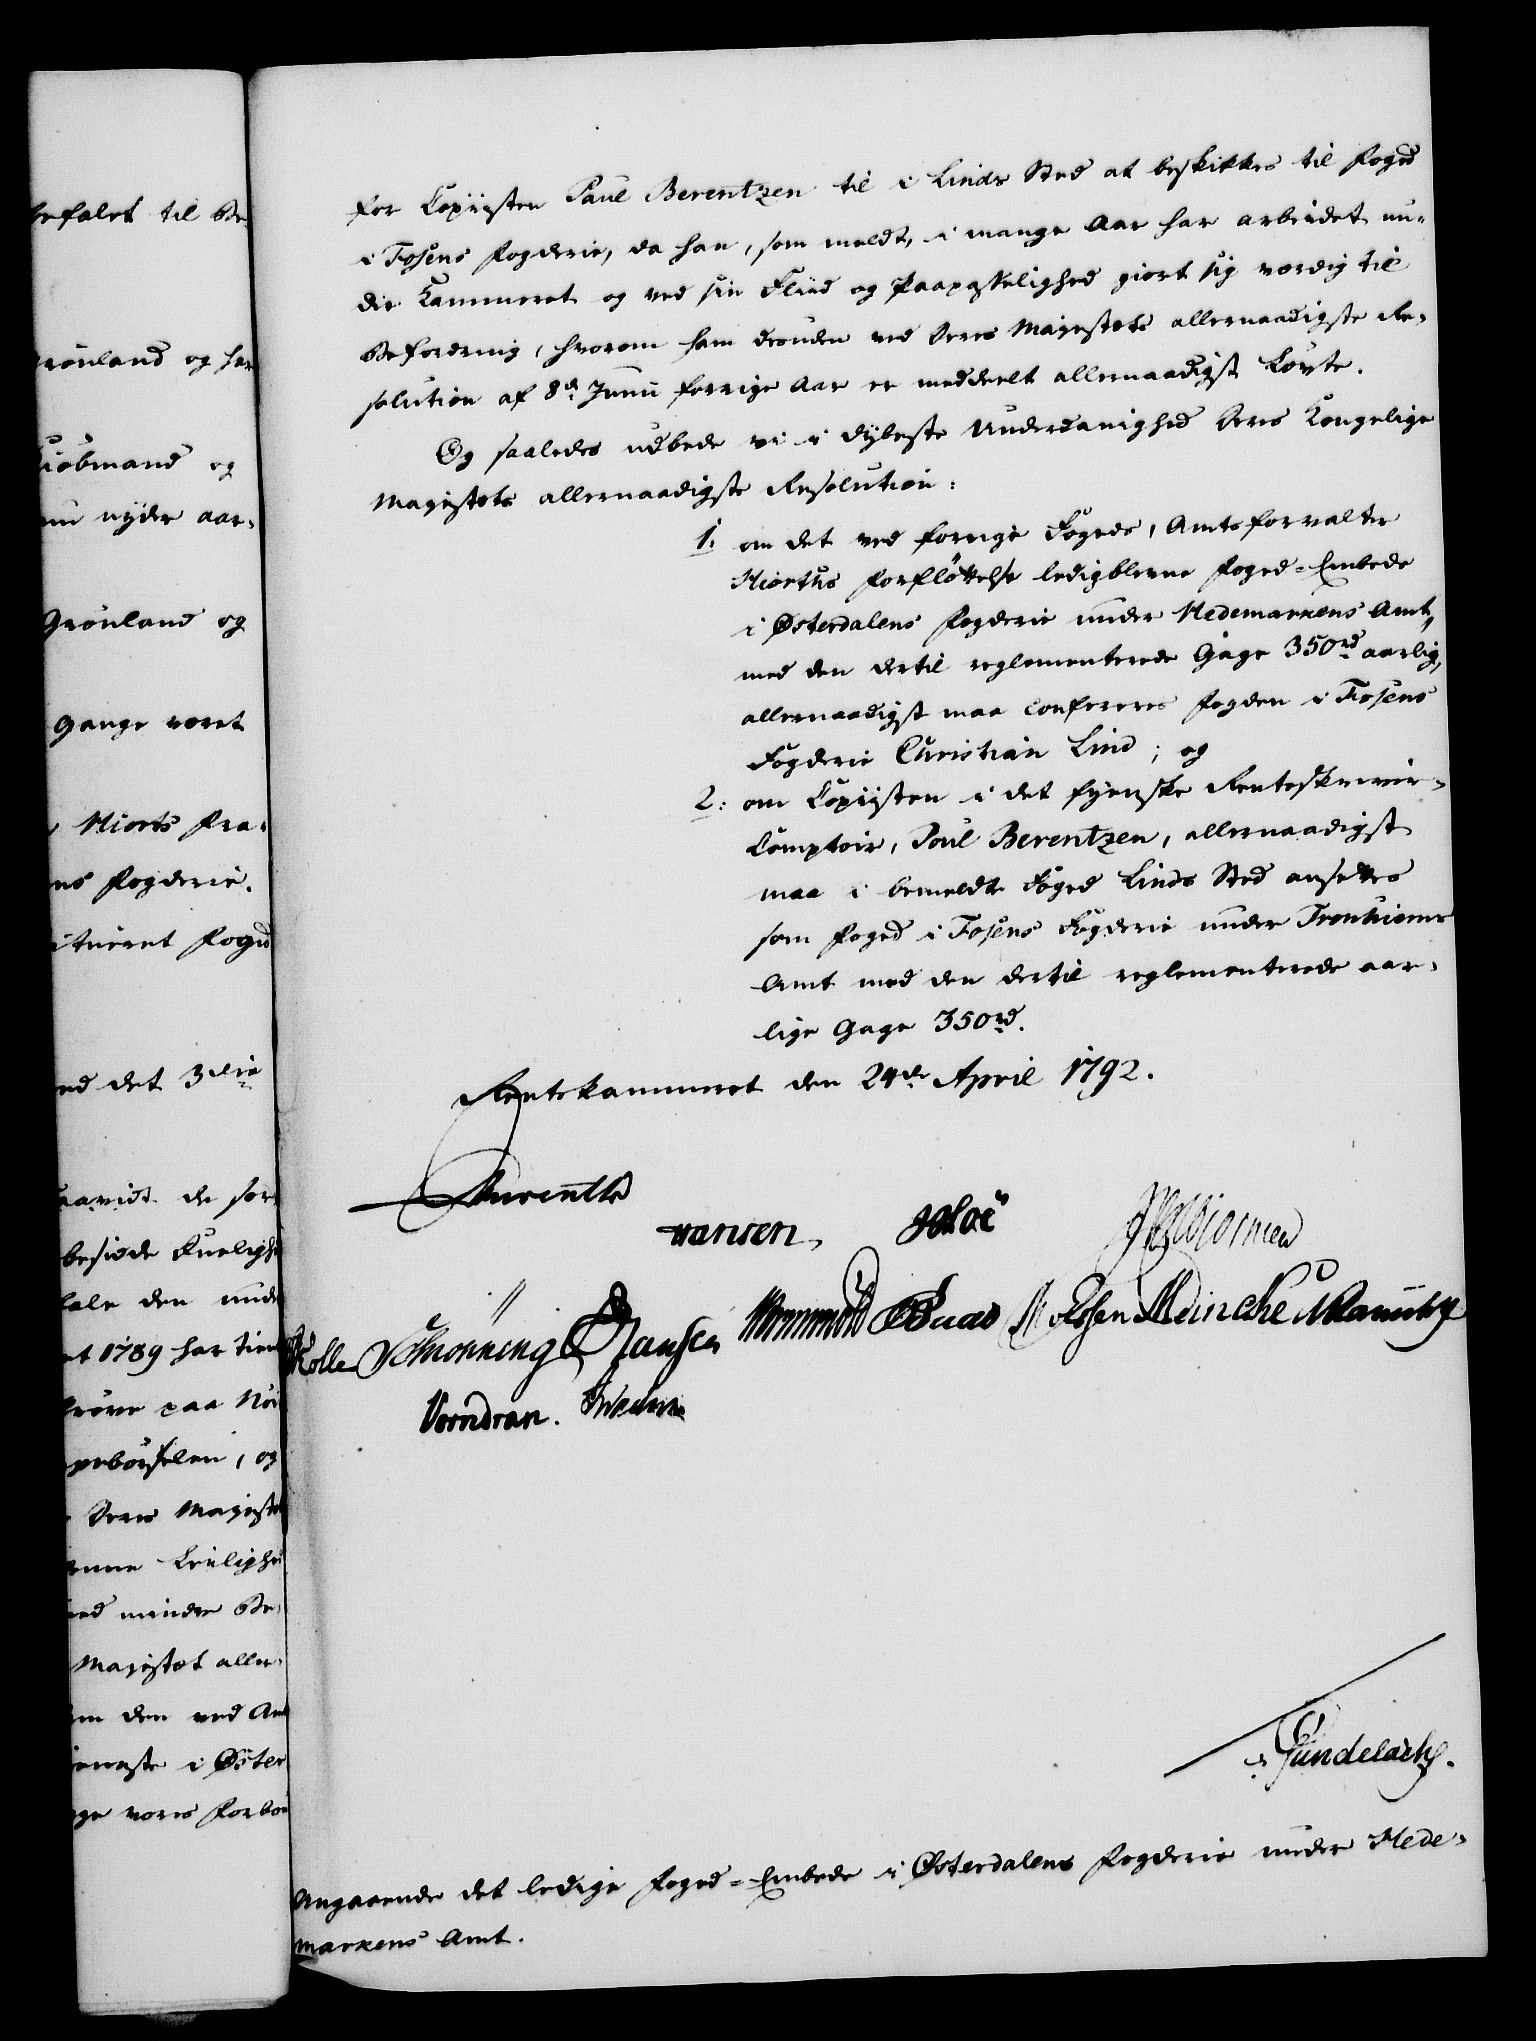 befalet til Be-
Grönland og har
Kiöbmand og
nu nyder aar-
Grönland og
Gange været
Hiorts fra-
ens Fogderie.
Fogd
ved det 3die
saavidt de for
besidde Duelighe
tale den unde
et 1789 har tient
Pröve paa
og
Deres Majestæt
denne Leilighed
ved mindre Be-
Majestæt aller-
den ved Amt
ieneste i Öster
vores Forbön
for Copiisten Paul Berentzen til i Linds Sted at beskikkes til Foged
i Fosens Fogderie, da han, som meldt, i mange Aar har arbeidet un-
der Kammeret og ved sin Fliid og Paapasselighed giort sig værdig til
Befordring, hvorom ham desuden ved Deres Majestæts allernaadigste Re-
solution af 8de Junii forrige Aar er meddeelt allernaadigst Löfte.
Og saaledes udbede vi i dybeste Underdanighed Deres Kongelige
Majestæts allernaadigste Resolution:
1: om det ved forrige Fogeds, Amtsforvalter
Hiorths Forflöttelse ledigblevne Foged-Embede
i Østerdalens Fogderie under Hedemarkens Amt,
med den dertil reglementerede Gage 350rd aarlig,
allernaadigst maa confereres Fogden i Fosens
Fogderie Christian Lind; og
2: om Copiisten i det fyenske Renteskriver-
Comptoir, Poul Berentzen, allernaadigst
maa i bemeldte Foged Linds Sted ansættes
som Foged i Fosens Fogderie under Tronhiems
Amt med den dertil reglementerede aar-
lige Gage 350rd.
Rentekammeret den 24de April 1792.
Hansen
Schrönning Hansen Wormskiold Meinche
Vorndran.
Gundelach.
Angaaende det ledige Foged-Embede i Østerdalens Fogderie under Hede-
markens Amt.